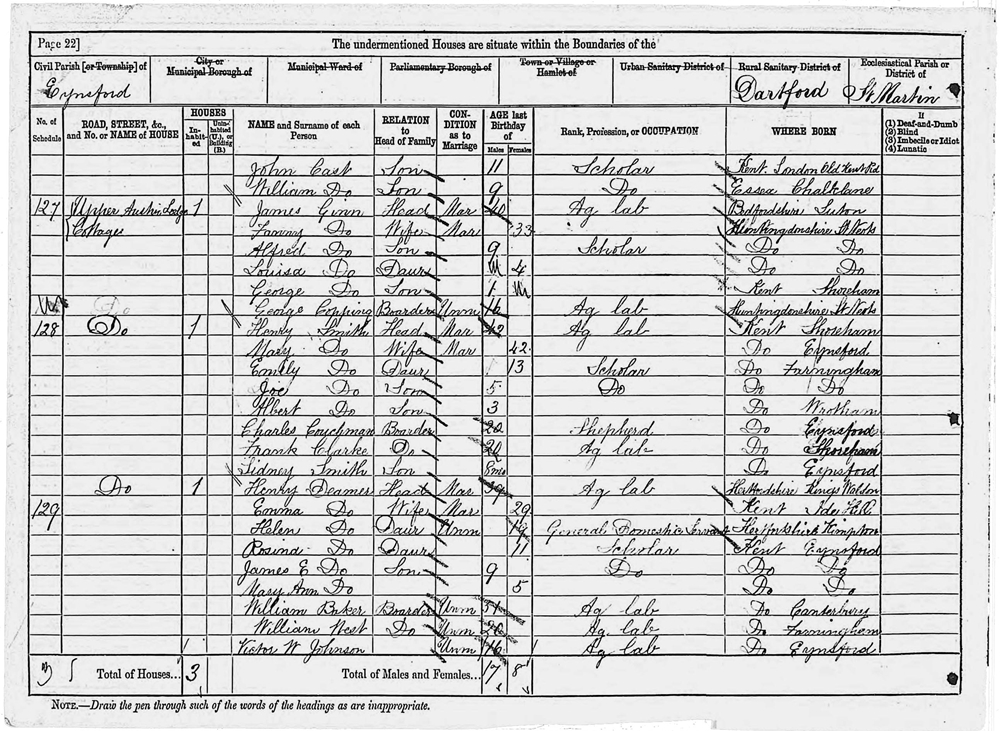 Page 22]
The undermentioned Houses are situate within the Boundaries of the
Civil Parish [or Township] of
City or Municipal Borough of
Municipal Ward of
Parliamentary Borough of
Town or Village or Hamlet of
Urban Sanitary District of
Rural Sanitary District of
Ecclesiastical Parish or District of
Eynsford
Dartford
St Martin
No. of Schedule
ROAD, STREET, &c., and No. or NAME of HOUSE
HOUSES
Inhabited
Uninhabited (U.), or Building (B.)
NAME and Surname of each Person
RELATION to Head of Family
CONDITION as to Marriage
AGE last Birthday of
Males
Females
Rank, Profession, or OCCUPATION
WHERE BORN
If
(1) Deaf-and-Dumb
(2) Blind
(3) Imbecile or Idiot
(4) Lunatic
John East Son 11 Scholar Kent London Old Kent Rd
William Do Son 9 Do Essex
127 Upper Austin Lodge 1 James Ginn Head Mar 40 Ag lab Bedfordshire
Cottages Fanny Do Wife Mar 33 Huntingdonshire St Neots
Alfred Do Son 9 Scholar Do Do
Louisa Do Daur 4 Do Do
George Do Son 1 Kent Shoreham
George Copping Boarder Unm 16 Ag lab Huntingdonshire St Neots
128 Do 1 Henry Smith Head Mar 42 Ag lab Kent Shoreham
Mary Do Wife Mar 42 Do Eynsford
Emily Do Daur 13 Scholar Do Farningham
Joe Do Son 5 Do Do Do
Albert Do Son 3 Do Wrotham
Charles Couchman Boarder 22 Shepherd Do Eynsford
Frank Clarke Do 20 Ag lab Do Shoreham
Sidney Smith Son 8mo Do Eynsford
Do 1 Henry Deamer Head Mar 39 Ag lab Hertfordshire Kings Walden
129 Emma Do Wife Mar 29 Kent Ide Hill
Helen Do Daur Unm 19 General Domestic Servant Hertfordshire Kimpton
Rosina Do Daur 11 Scholar Kent Eynsford
James E Do Son 9 Do Do Do
Mary Ann Do 5 Do Do
William Baker Boarder Unm 51 Ag lab Do Canterbury
William West Do Unm Ag lab Do Farningham
Victor W Johnson Unm 16 Ag lab Do Eynsford
3 Total of Houses... 3 Total of Males and Females... 17 8
NOTE.—Draw the pen through such of the words of the headings as are inappropriate.